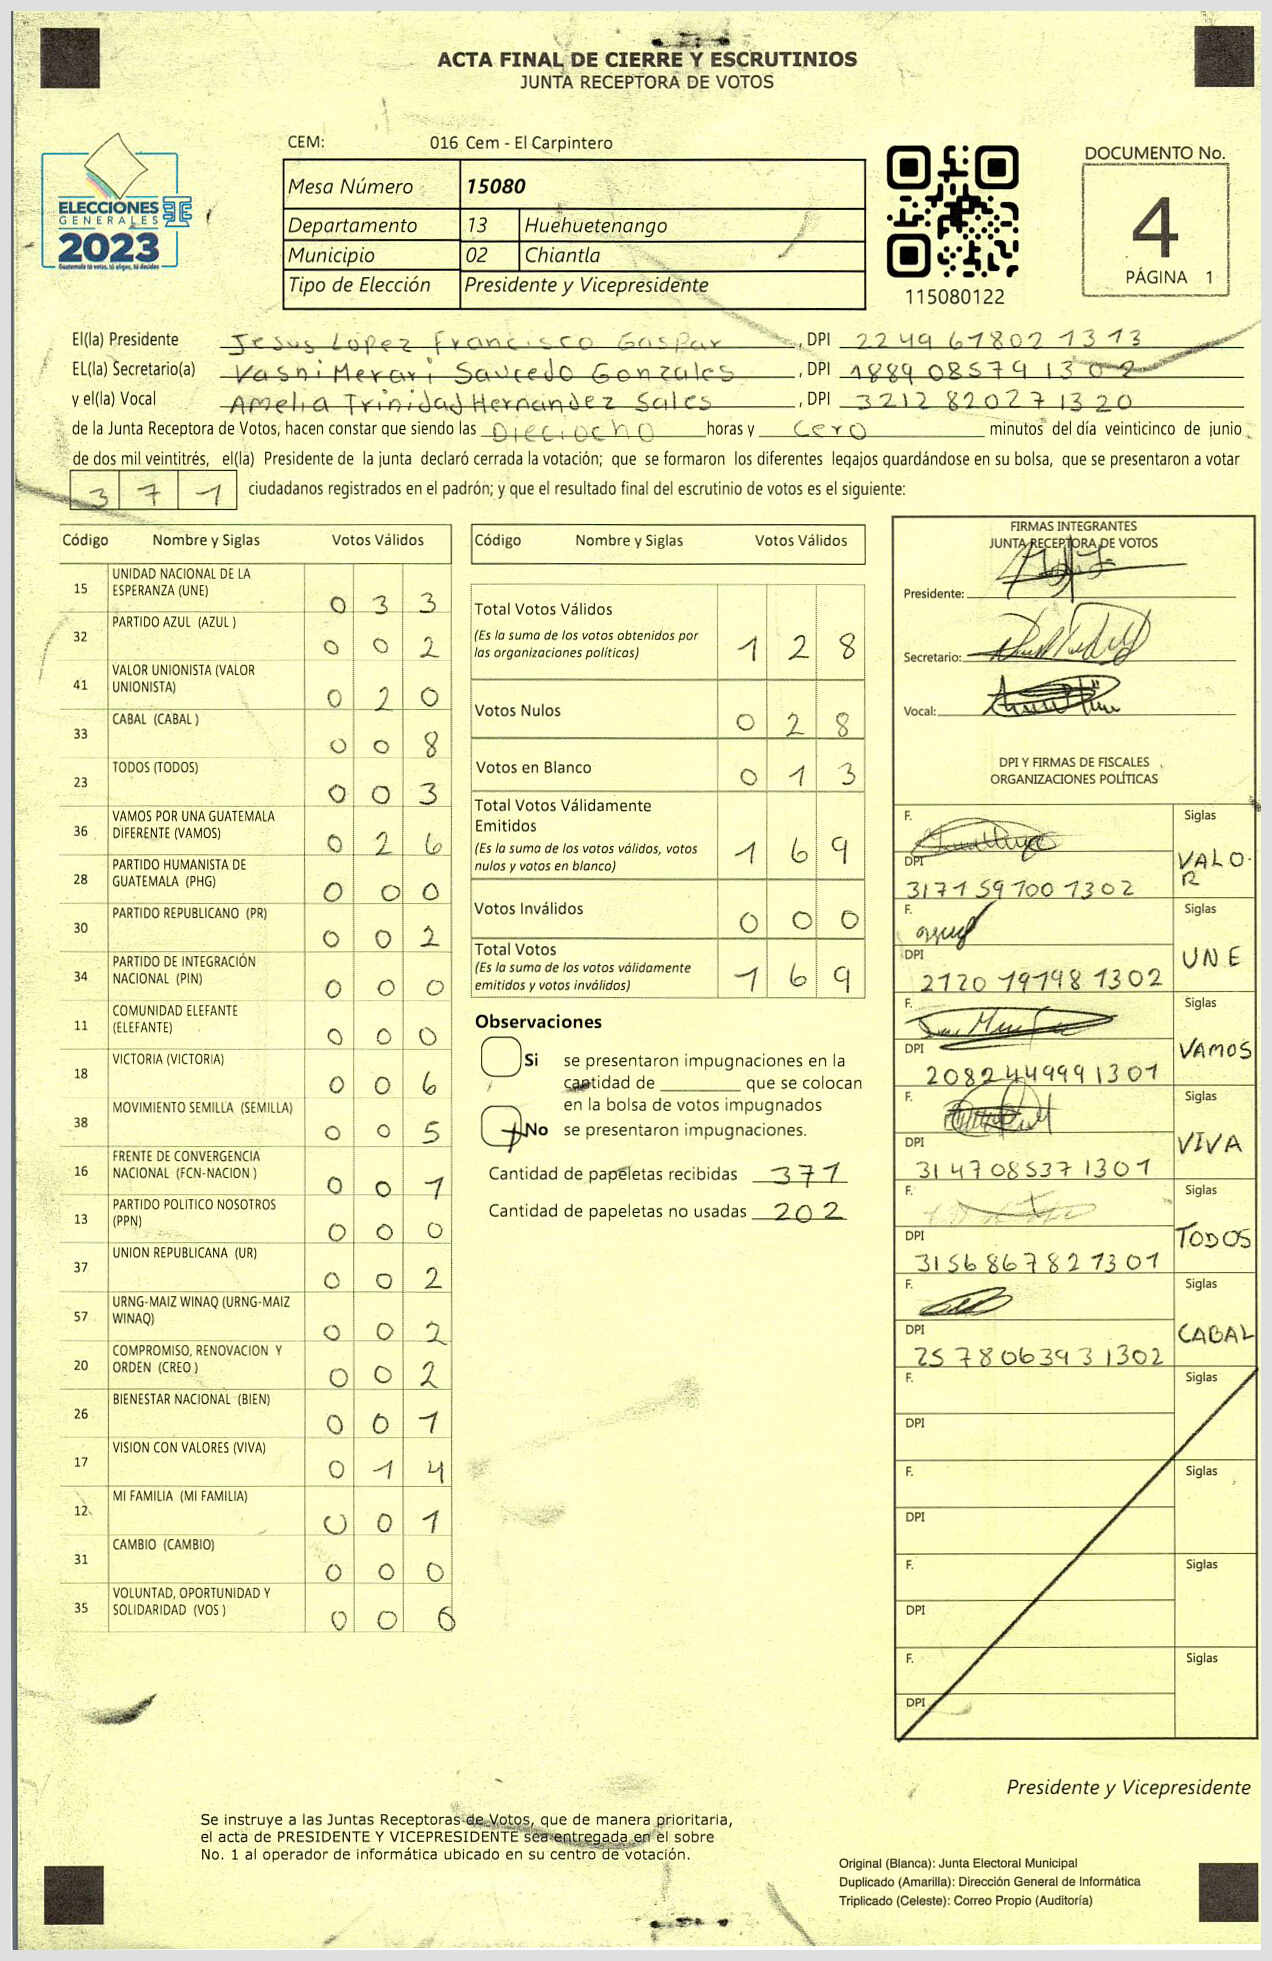 ACTA FINAL DE CIERRE Y ESCRUTINIOS
JUNTA RECEPTORA DE VOTOS
CEM: 016 Cem - El Carpintero
ELECCIONES
GENERALES
2023
Guatemala tú votas, tú eliges, tú decides
Mesa Número 15080
Departamento 13 Huehuetenango
Municipio 02 Chiantla
Tipo de Elección Presidente y Vicepresidente
115080122
DOCUMENTO No.
4
PÁGINA 1
El(la) Presidente Jesus Lopez Francisco Gaspar, DPI 2249 61802 1313
EL(la) Secretario(a) Vasni Merari Saucedo Gonzales, DPI 1889 08579 1302
y el(la) Vocal Amelia Trinidad Hernandez Sales, DPI 3212 82027 1320
de la Junta Receptora de Votos, hacen constar que siendo las Dieciocho horas y cero minutos del día veinticinco de junio
de dos mil veintitrés, el(la) Presidente de la junta declaró cerrada la votación; que se formaron los diferentes legajos guardándose en su bolsa, que se presentaron a votar
3 7 1 ciudadanos registrados en el padrón; y que el resultado final del escrutinio de votos es el siguiente:
Código Nombre y Siglas Votos Válidos
15 UNIDAD NACIONAL DE LA ESPERANZA (UNE) 0 3 3
32 PARTIDO AZUL (AZUL ) 0 0 2
41 VALOR UNIONISTA (VALOR UNIONISTA) 0 2 0
33 CABAL (CABAL ) 0 0 8
23 TODOS (TODOS) 0 0 3
36 VAMOS POR UNA GUATEMALA DIFERENTE (VAMOS) 0 2 6
28 PARTIDO HUMANISTA DE GUATEMALA (PHG) 0 0 0
30 PARTIDO REPUBLICANO (PR) 0 0 2
34 PARTIDO DE INTEGRACIÓN NACIONAL (PIN) 0 0 0
11 COMUNIDAD ELEFANTE (ELEFANTE) 0 0 0
18 VICTORIA (VICTORIA) 0 0 6
38 MOVIMIENTO SEMILLA (SEMILLA) 0 0 5
16 FRENTE DE CONVERGENCIA NACIONAL (FCN-NACION ) 0 0 1
13 PARTIDO POLITICO NOSOTROS (PPN) 0 0 0
37 UNION REPUBLICANA (UR) 0 0 2
57 URNG-MAIZ WINAQ (URNG-MAIZ WINAQ) 0 0 2
20 COMPROMISO, RENOVACION Y ORDEN (CREO ) 0 0 2
26 BIENESTAR NACIONAL (BIEN) 0 0 1
17 VISION CON VALORES (VIVA) 0 1 4
12 MI FAMILIA (MI FAMILIA) 0 0 1
31 CAMBIO (CAMBIO) 0 0 0
35 VOLUNTAD, OPORTUNIDAD Y SOLIDARIDAD (VOS ) 0 0 6
Código Nombre y Siglas Votos Válidos
Total Votos Válidos 1 2 8
(Es la suma de los votos obtenidos por
las organizaciones políticas)
Votos Nulos 0 2 8
Votos en Blanco 0 1 3
Total Votos Válidamente
Emitidos 1 6 9
(Es la suma de los votos válidos, votos
nulos y votos en blanco)
Votos Inválidos 0 0 0
Total Votos 1 6 9
(Es la suma de los votos válidamente
emitidos y votos inválidos)
Observaciones
Si se presentaron impugnaciones en la
cantidad de ________ que se colocan
en la bolsa de votos impugnados
No se presentaron impugnaciones.
Cantidad de papeletas recibidas 371
Cantidad de papeletas no usadas 202
FIRMAS INTEGRANTES
JUNTA RECEPTORA DE VOTOS
Presidente:
Secretario:
Vocal:
DPI Y FIRMAS DE FISCALES
ORGANIZACIONES POLÍTICAS
F. Siglas
DPI VALOR
3171 59100 1302
F. Siglas
DPI UNE
2120 19198 1302
F. Siglas
DPI VAMOS
2082449991301
F. Siglas
DPI VIVA
3147085371301
F. Siglas
DPI TODOS
3156 86782 1301
F. Siglas
DPI CABAL
2578063931302
F. Siglas
DPI
F. Siglas
DPI
F. Siglas
DPI
F. Siglas
DPI
Presidente y Vicepresidente
Se instruye a las Juntas Receptoras de Votos, que de manera prioritaria,
el acta de PRESIDENTE Y VICEPRESIDENTE sea entregada en el sobre
No. 1 al operador de informática ubicado en su centro de votación.
Original (Blanca): Junta Electoral Municipal
Duplicado (Amarilla): Dirección General de Informática
Triplicado (Celeste): Correo Propio (Auditoría)